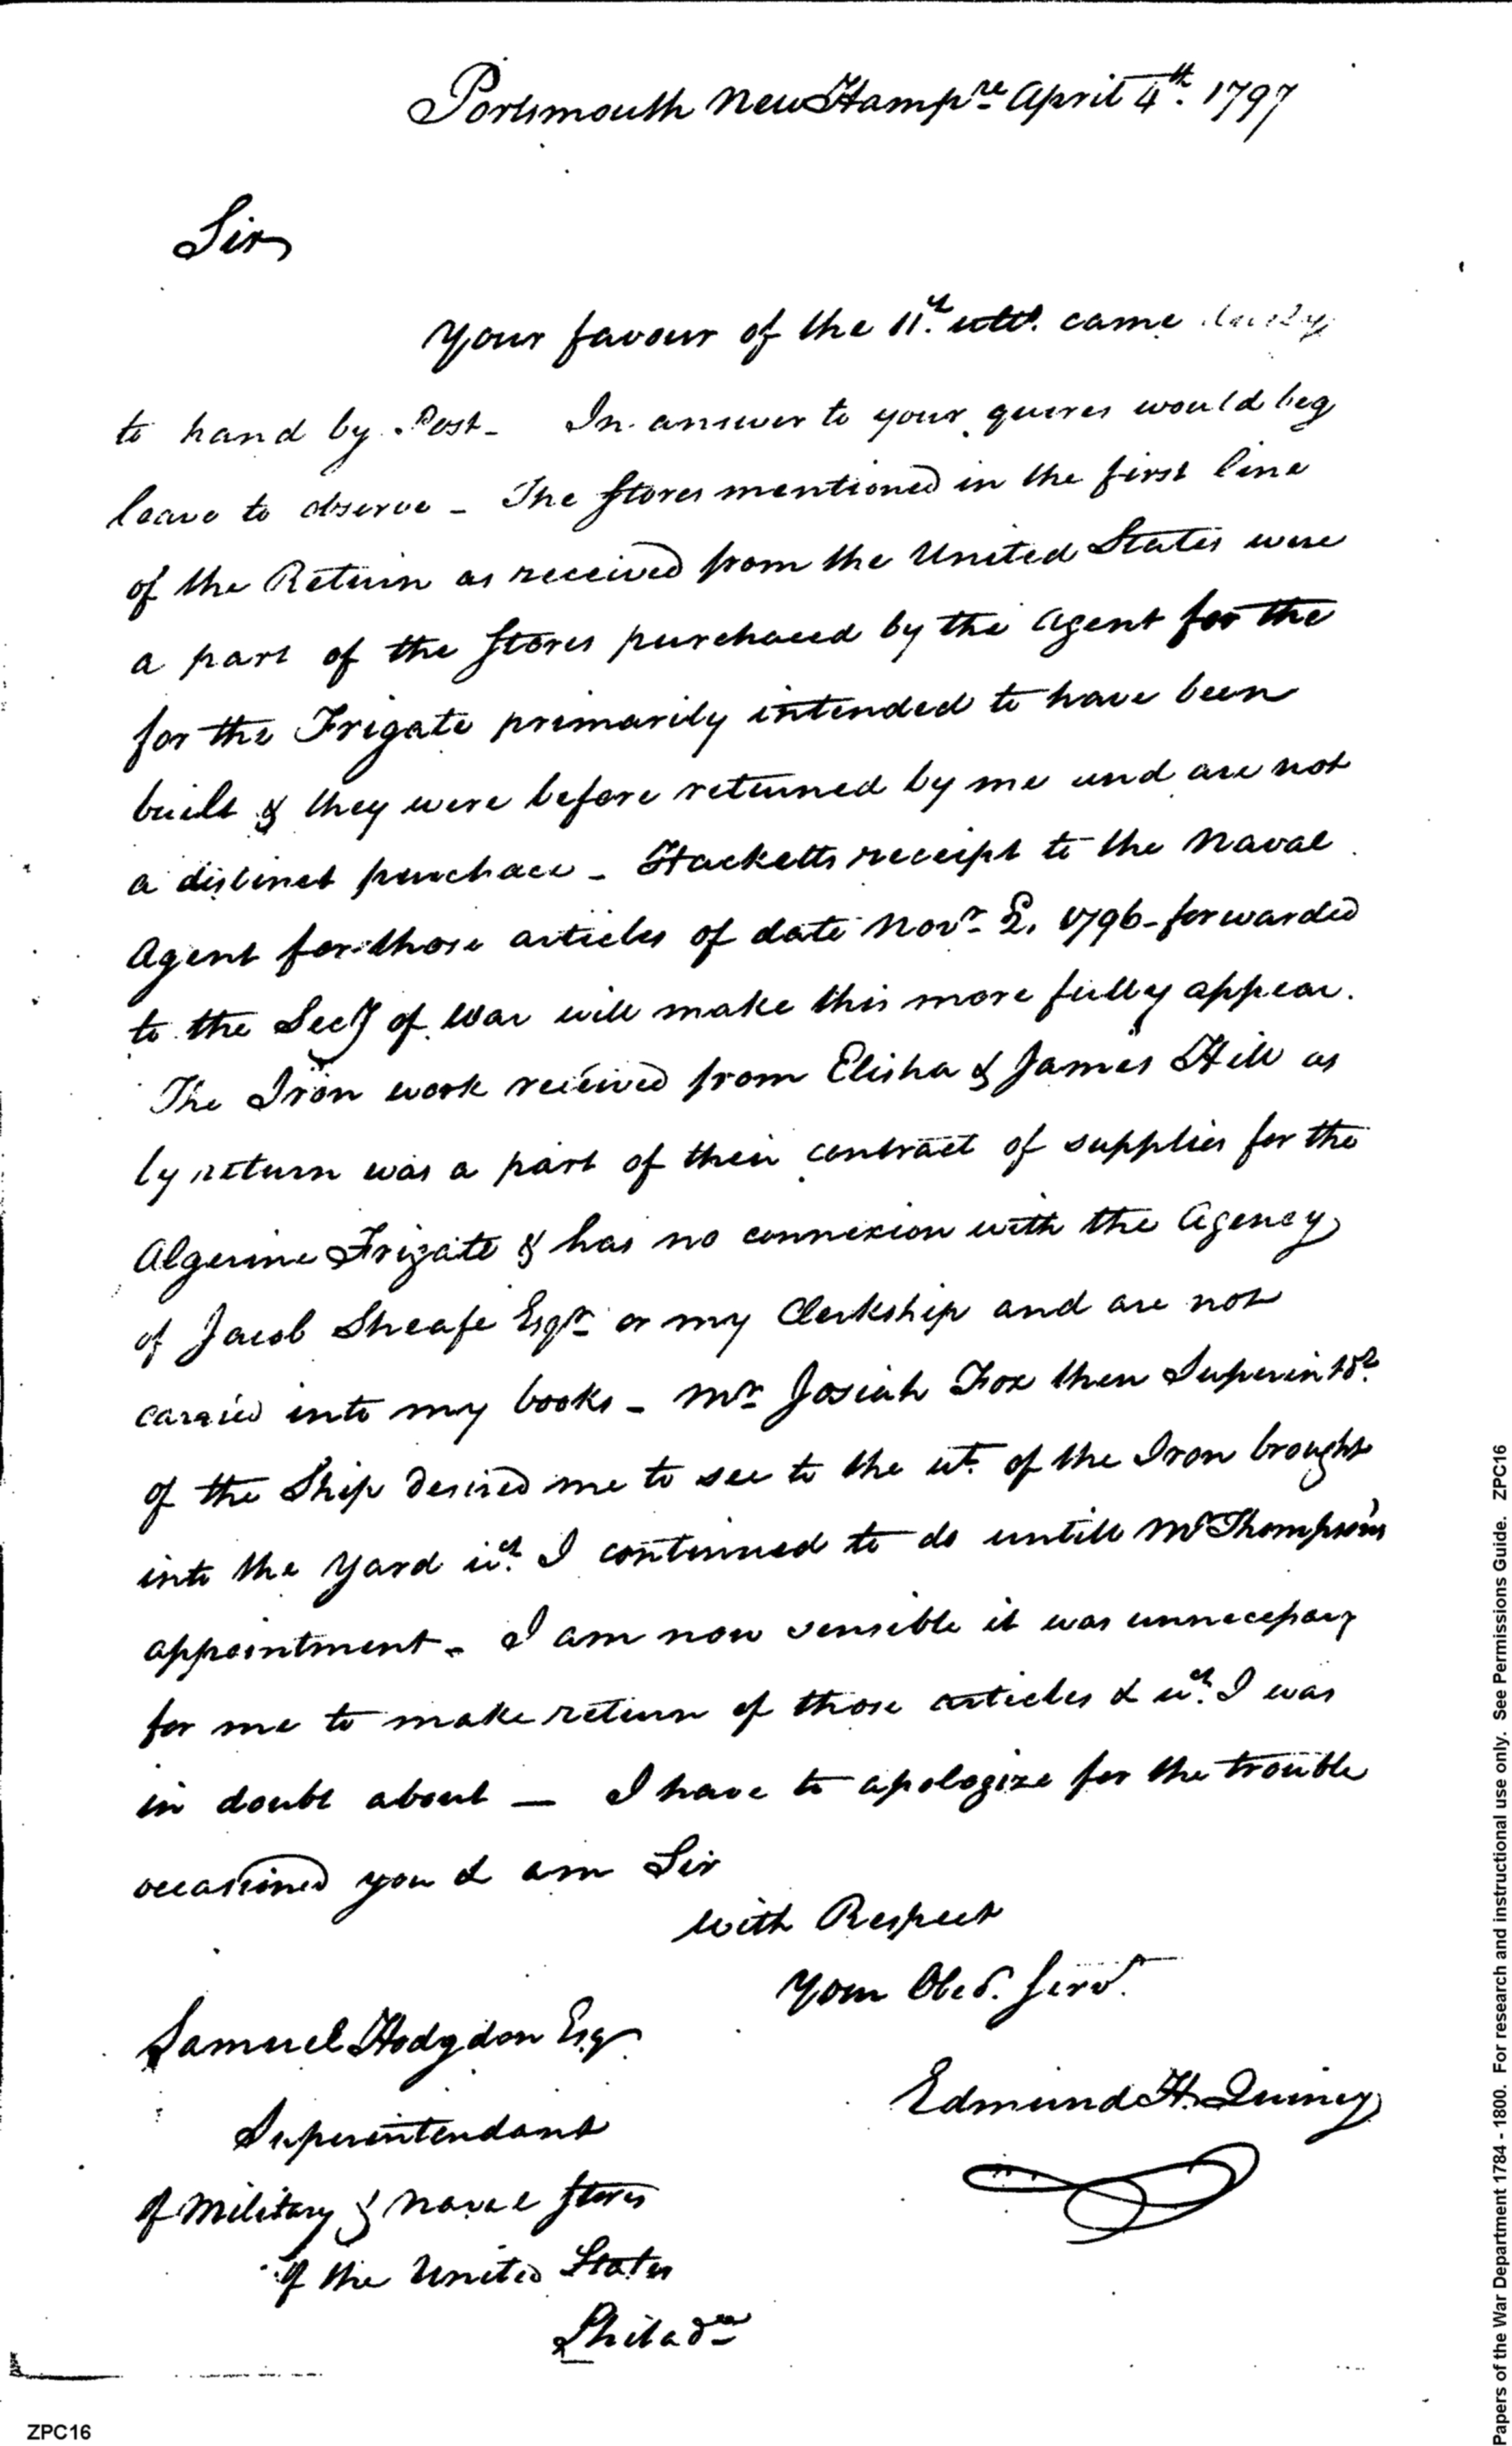 Portsmouth New Hampre April 4th. 1797
Sir
Your favour of the 11th. ulto. came duely
to hand by Post - In answer to your queres would beg
leave to observe - The Stores mentioned in the first line
of the Return as received from the United States were
a part of the Stores purchaced by the Agent for the
for the Frigate primarily intended to have been
built & they were before returned by me and are not
a distinct purchace - Hacketts receipt to the Naval
Agent for those articles of date Novr 2. 1796 - forwarded
to the Secy of War will make this more fully appear.
The Iron work received from Elisha & James Hill as
by return was a part of their contract of supplies for the
Algerine Frigate & has no connexion with the Agency
of Jacob Sheafe Esqr or my Clerkship and are not
carried into my books - Mr Josiah Fox then Superintdt
of the Ship desired me to see to the wt. of the Iron brought
into the Yard wch. I continued to do untill Mr Thompson's
appointment - I am now sensible it was unnecessary
for me to make return of those articles & wch. I was
in doubt about — I have to apologize for the trouble
occasioned you & am Sir
with Respect
Your Obed. Servt.
Samuel Hodgdon Esqr
Edmund H. Quincy
Superintendant
of Military & Naval Stores
of the United States
Philada
ZPC16
Papers of the War Department 1784 - 1800. For research and instructional use only. See Permissions Guide. ZPC16